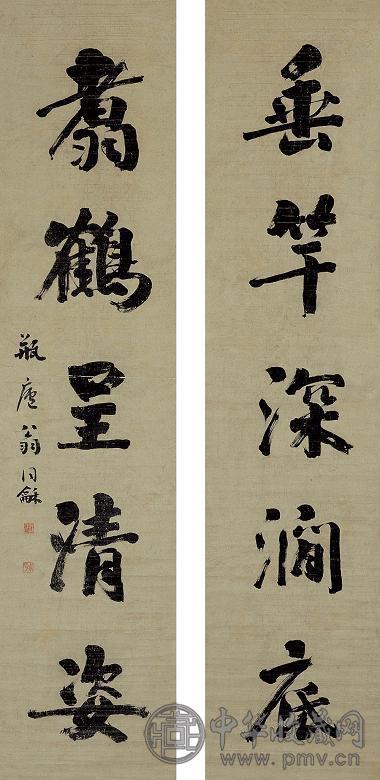 垂竿深澗底
翥鶴呈清姿
瓶廬翁同龢
中华收藏网
www.pmv.cn